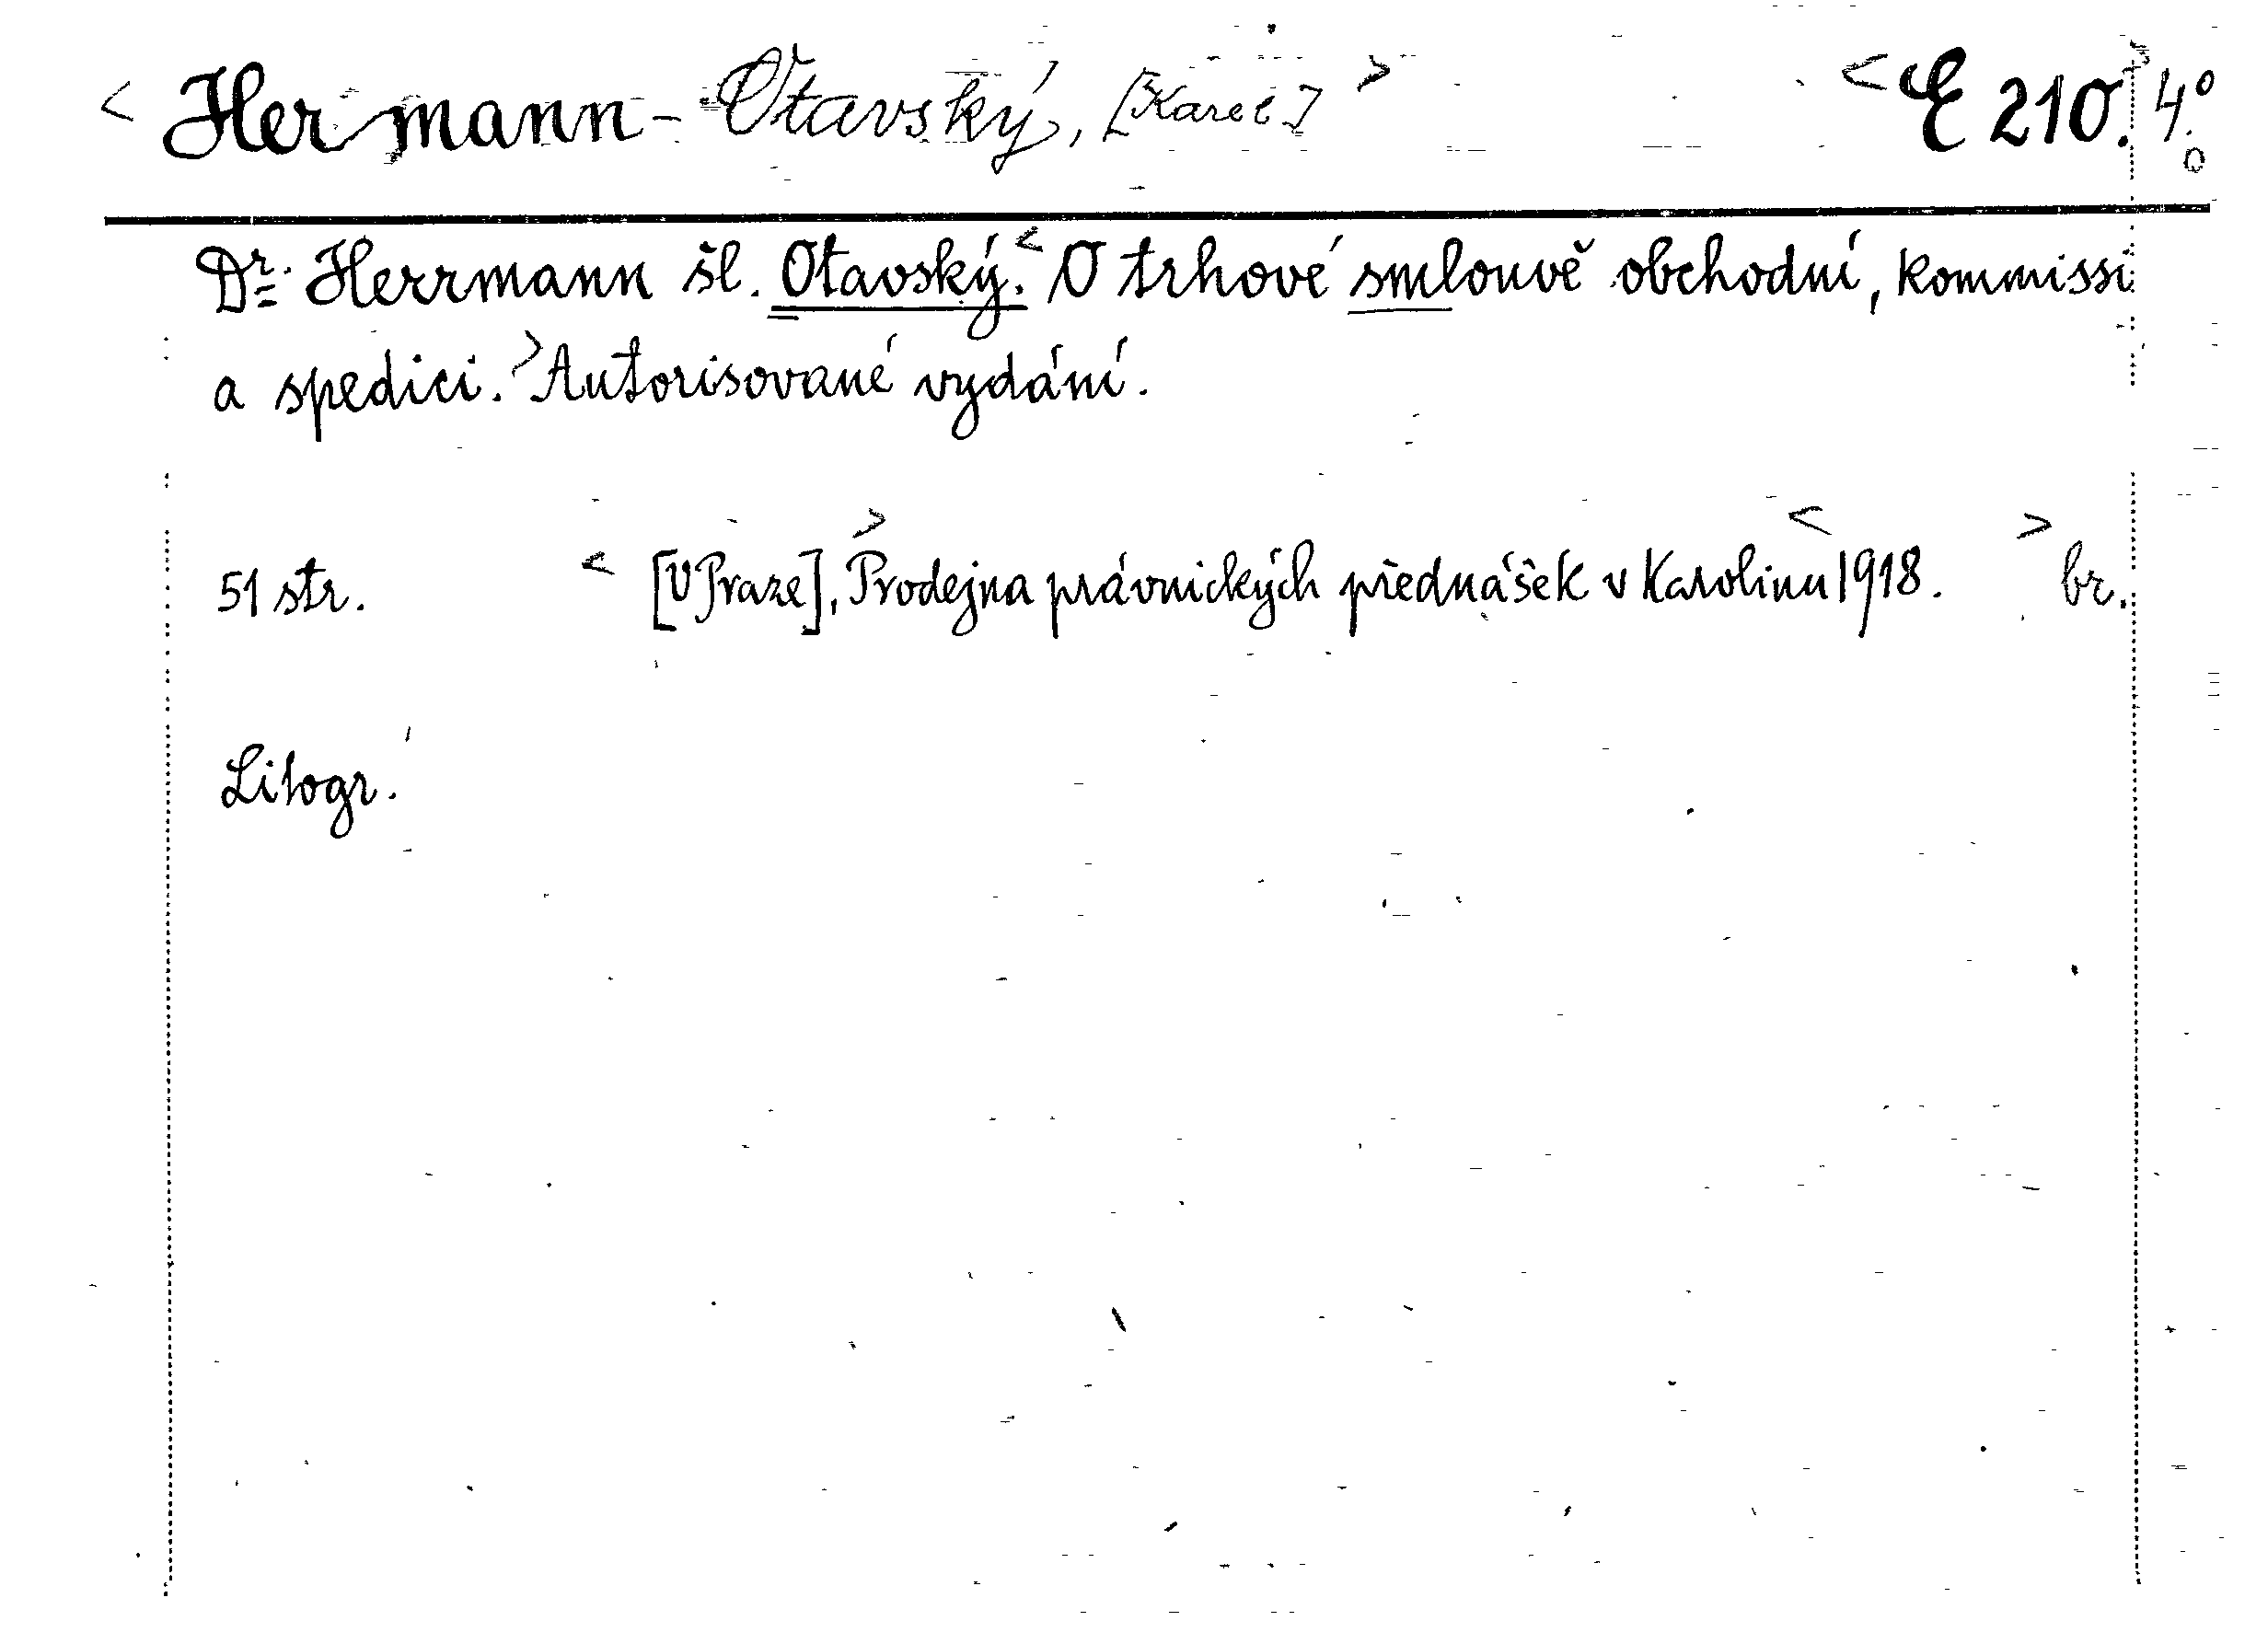 < Hermann-Otavský, [Karel] > < E 210. 4°
Dr. Herrmann šl. Otavský. < O trhové smlouvě obchodní, kommissi
a spedici. > Autorisované vydání.
51 str. < [V Praze], > Prodejna právnických přednášek v Karolinu < 1918. > br.
Litogr.